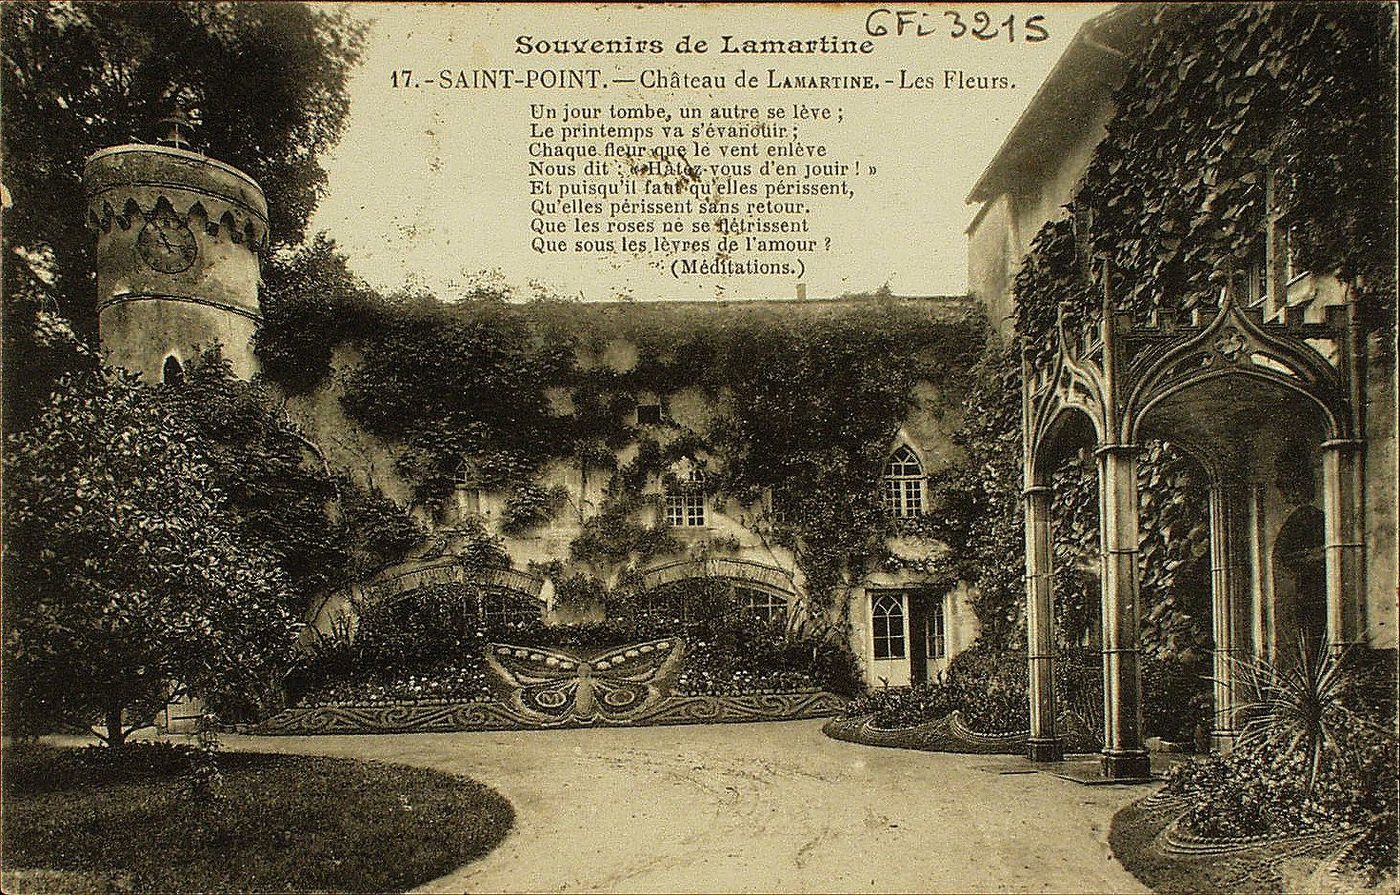 6Fi 3215
Souvenirs de Lamartine
17.-SAINT-POINT.—Château de LAMARTINE.-Les Fleurs.
Un jour tombe, un autre se lève ;
Le printemps va s'évanouir ;
Chaque fleur que le vent enlève
Nous dit : « Hâtez-vous d'en jouir ! »
Et puisqu'il faut qu'elles périssent,
Qu'elles périssent sans retour.
Que les roses ne se flétrissent
Que sous les lèvres de l'amour ?
(Méditations.)